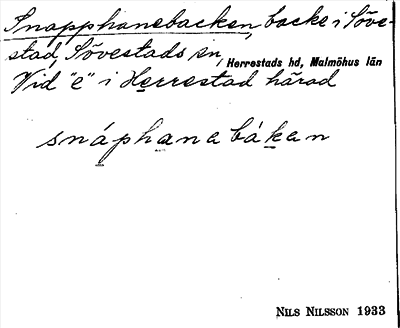 Snapphanebacken, backe i Söve-
stad, Sövestads sn, Herrestads hd, Malmöhus län
Vid "e" i Herrestad härad
snáphanebáken
NILS NILSSON 1933